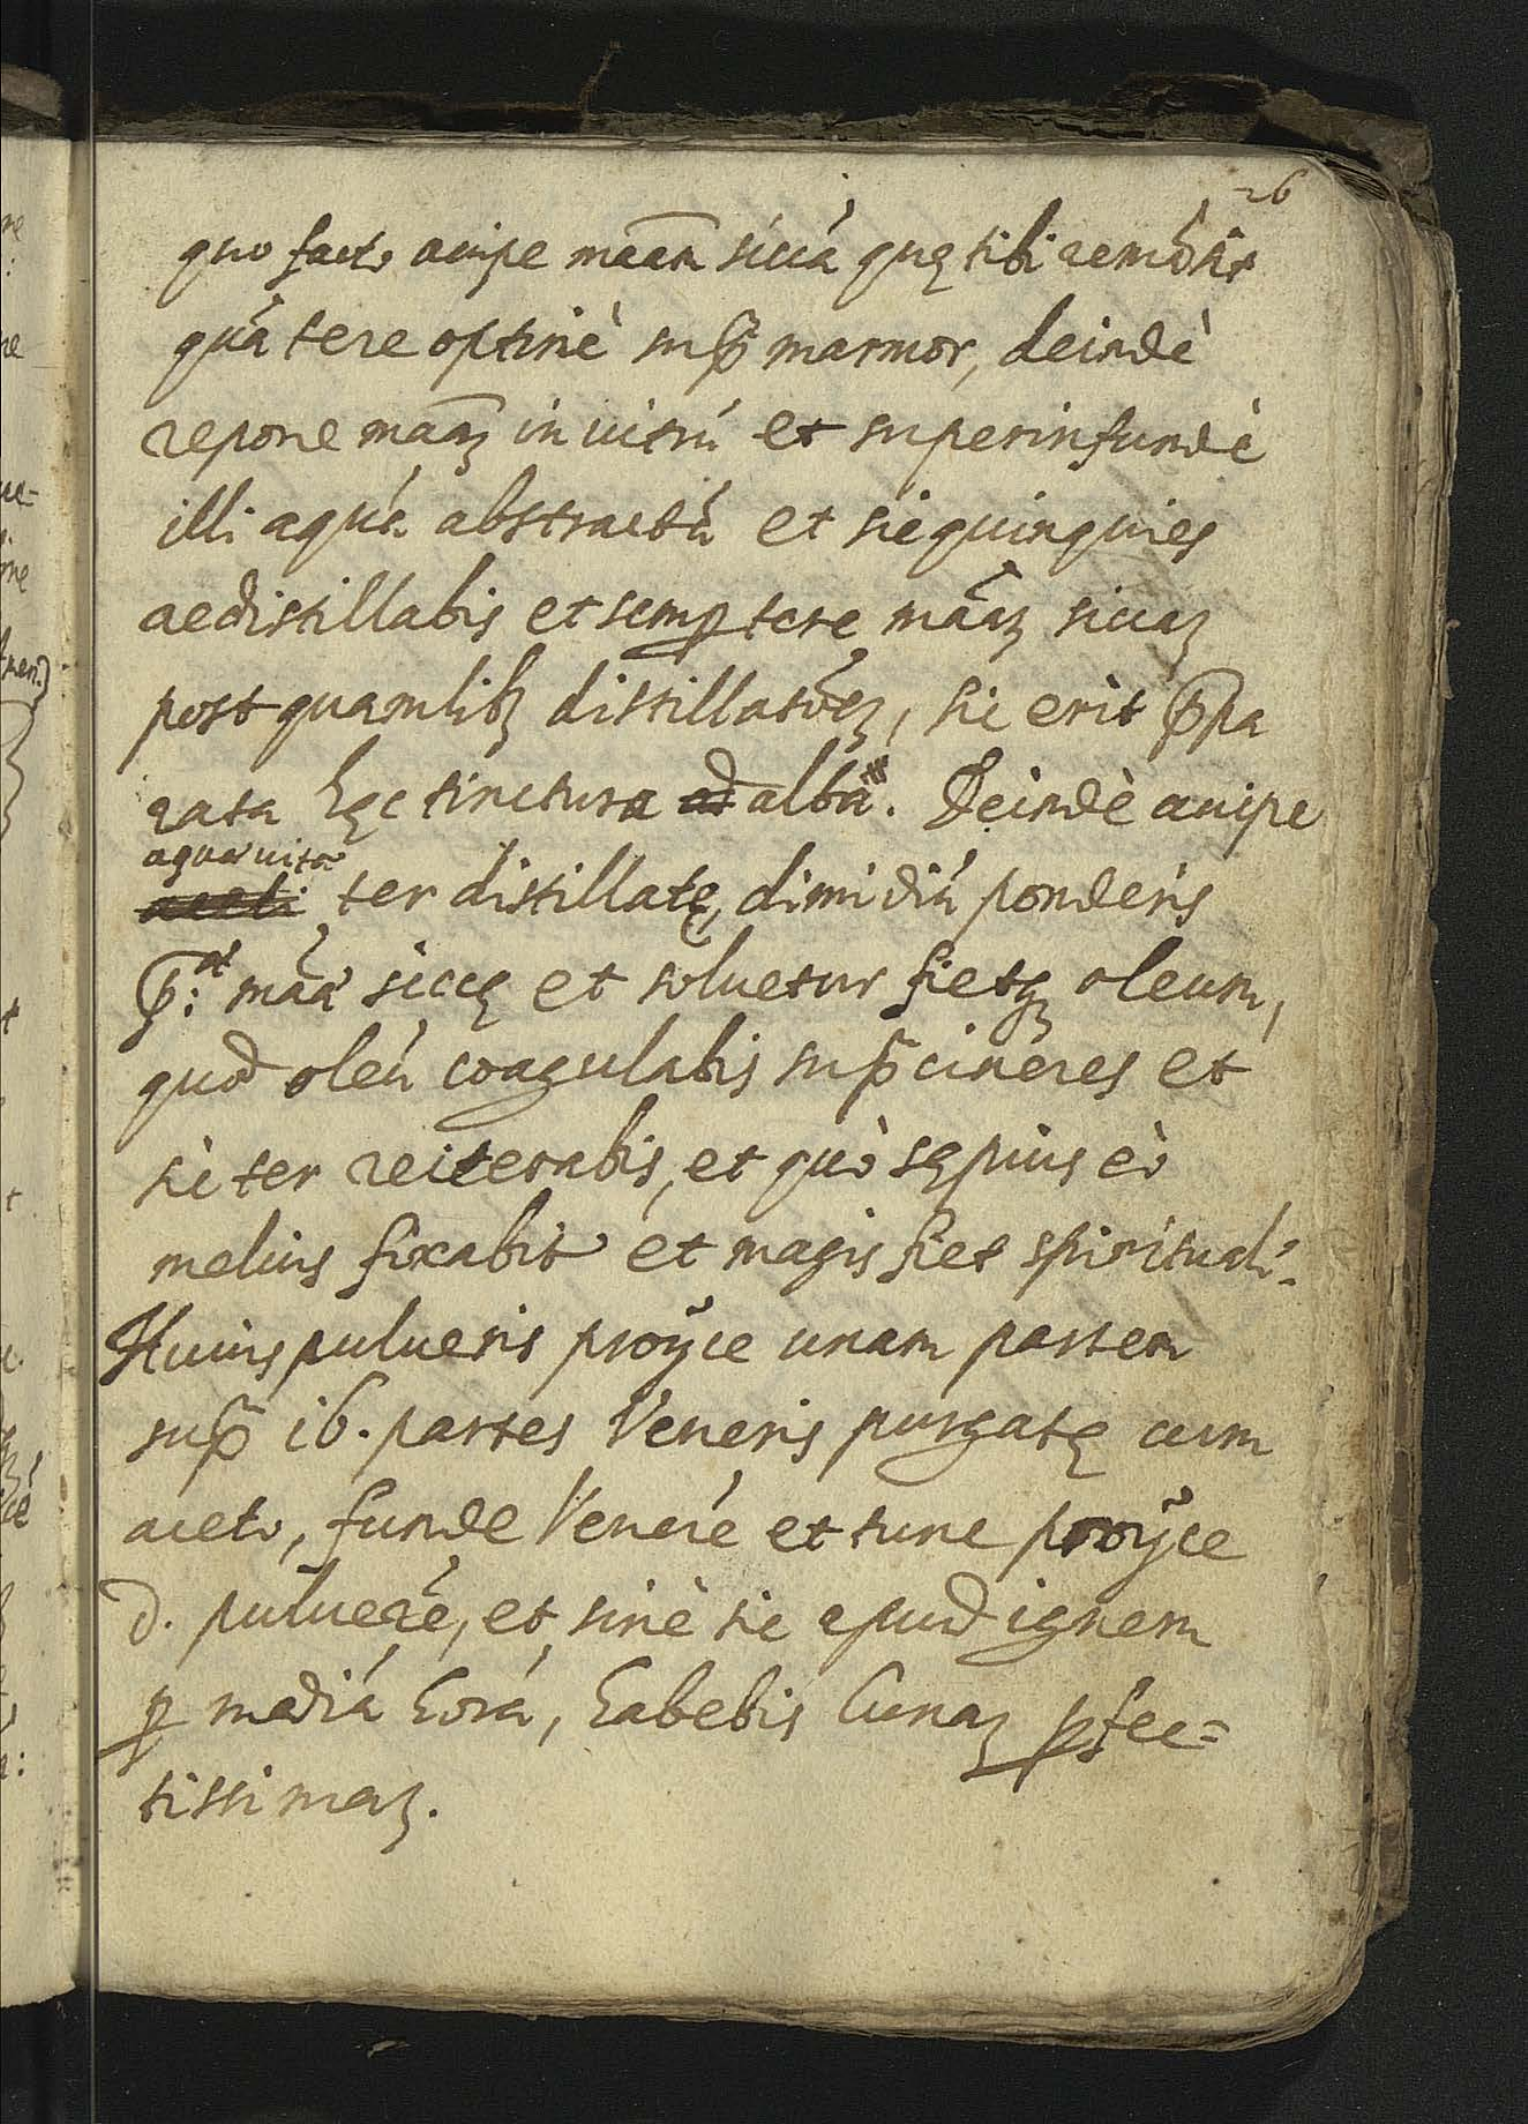 26
quo facto accipe maãm siccá quę tibi remásit
quá tere optimè sup̃ marmor, deindè
repone maãꝫ in uitrú et superinfundè
illi aquá abstractá et sic quinquies
redistillabis et semꝑ tere mãaꝫ siccaꝫ
post quamlibꝫ distillatióeꝫ, sic erit p̃pa
rata hęc tinctura ad alba. Deindè accipe
aqua uitæ
aceti ter distillatę, dimidiú ponderis
p̃: at mãa siccę et soluetur fietqꝫ oleum,
quod oleú coagulabis sup̃ cineres et
sic ter reiterabis, et quò sępius eò
melius fixabit et magis fiet spirituali:
Huius pulueris proÿce unam partem
sup̃ 16. partes Veneris purgatę cum
aceto, funde Veneré et tunc proÿce
d. pulueré, et sinè sic apud ignem
ꝑ mediá horá, habebis Lunaꝫ ꝑfec=
tissimaꝫ.